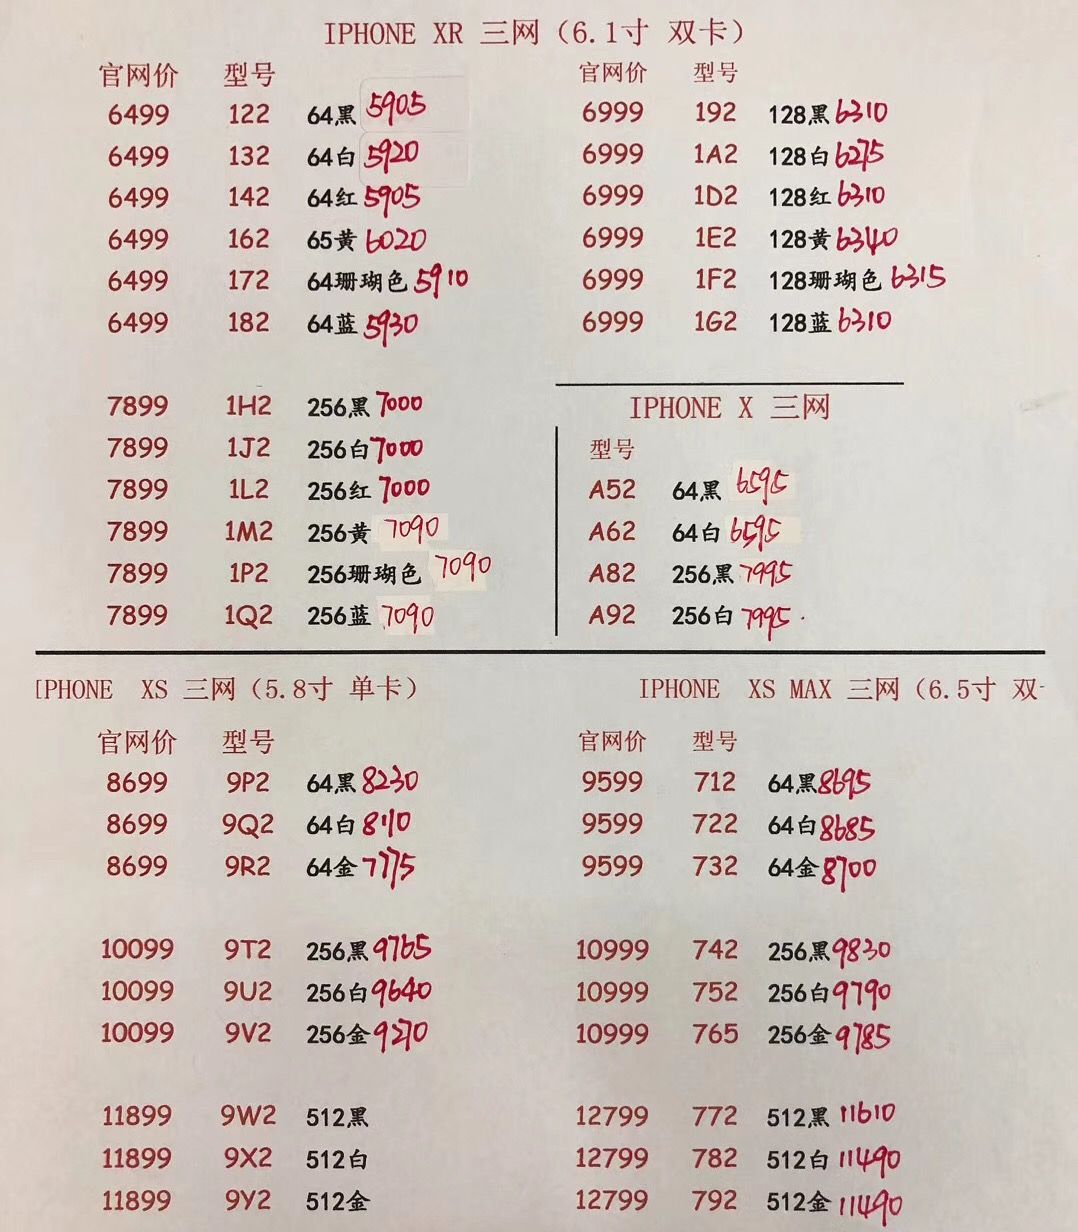 IPHONE XR 三网（6.1寸 双卡）
官网价 型号
6499 122 64黑 5905
6499 132 64白 5920
6499 142 64红 5905
6499 162 65黄 6020
6499 172 64珊瑚色 5910
6499 182 64蓝 5930
7899 1H2 256黑 7000
7899 1J2 256白 7000
7899 1L2 256红 7000
7899 1M2 256黄 7090
7899 1P2 256珊瑚色 7090
7899 1Q2 256蓝 7090
官网价 型号
6999 192 128黑 6310
6999 1A2 128白 6275
6999 1D2 128红 6310
6999 1E2 128黄 6340
6999 1F2 128珊瑚色 6315
6999 1G2 128蓝 6310
IPHONE X 三网
型号
A52 64黑 6595
A62 64白 6595
A82 256黑 7995
A92 256白 7995
IPHONE XS 三网（5.8寸 单卡）
官网价 型号
8699 9P2 64黑 8230
8699 9Q2 64白 8110
8699 9R2 64金 7775
10099 9T2 256黑 9765
10099 9U2 256白 9640
10099 9V2 256金 9270
11899 9W2 512黑
11899 9X2 512白
11899 9Y2 512金
IPHONE XS MAX 三网（6.5寸 双
官网价 型号
9599 712 64黑 8695
9599 722 64白 8685
9599 732 64金 8700
10999 742 256黑 9830
10999 752 256白 9790
10999 765 256金 9785
12799 772 512黑 11610
12799 782 512白 11490
12799 792 512金 11490